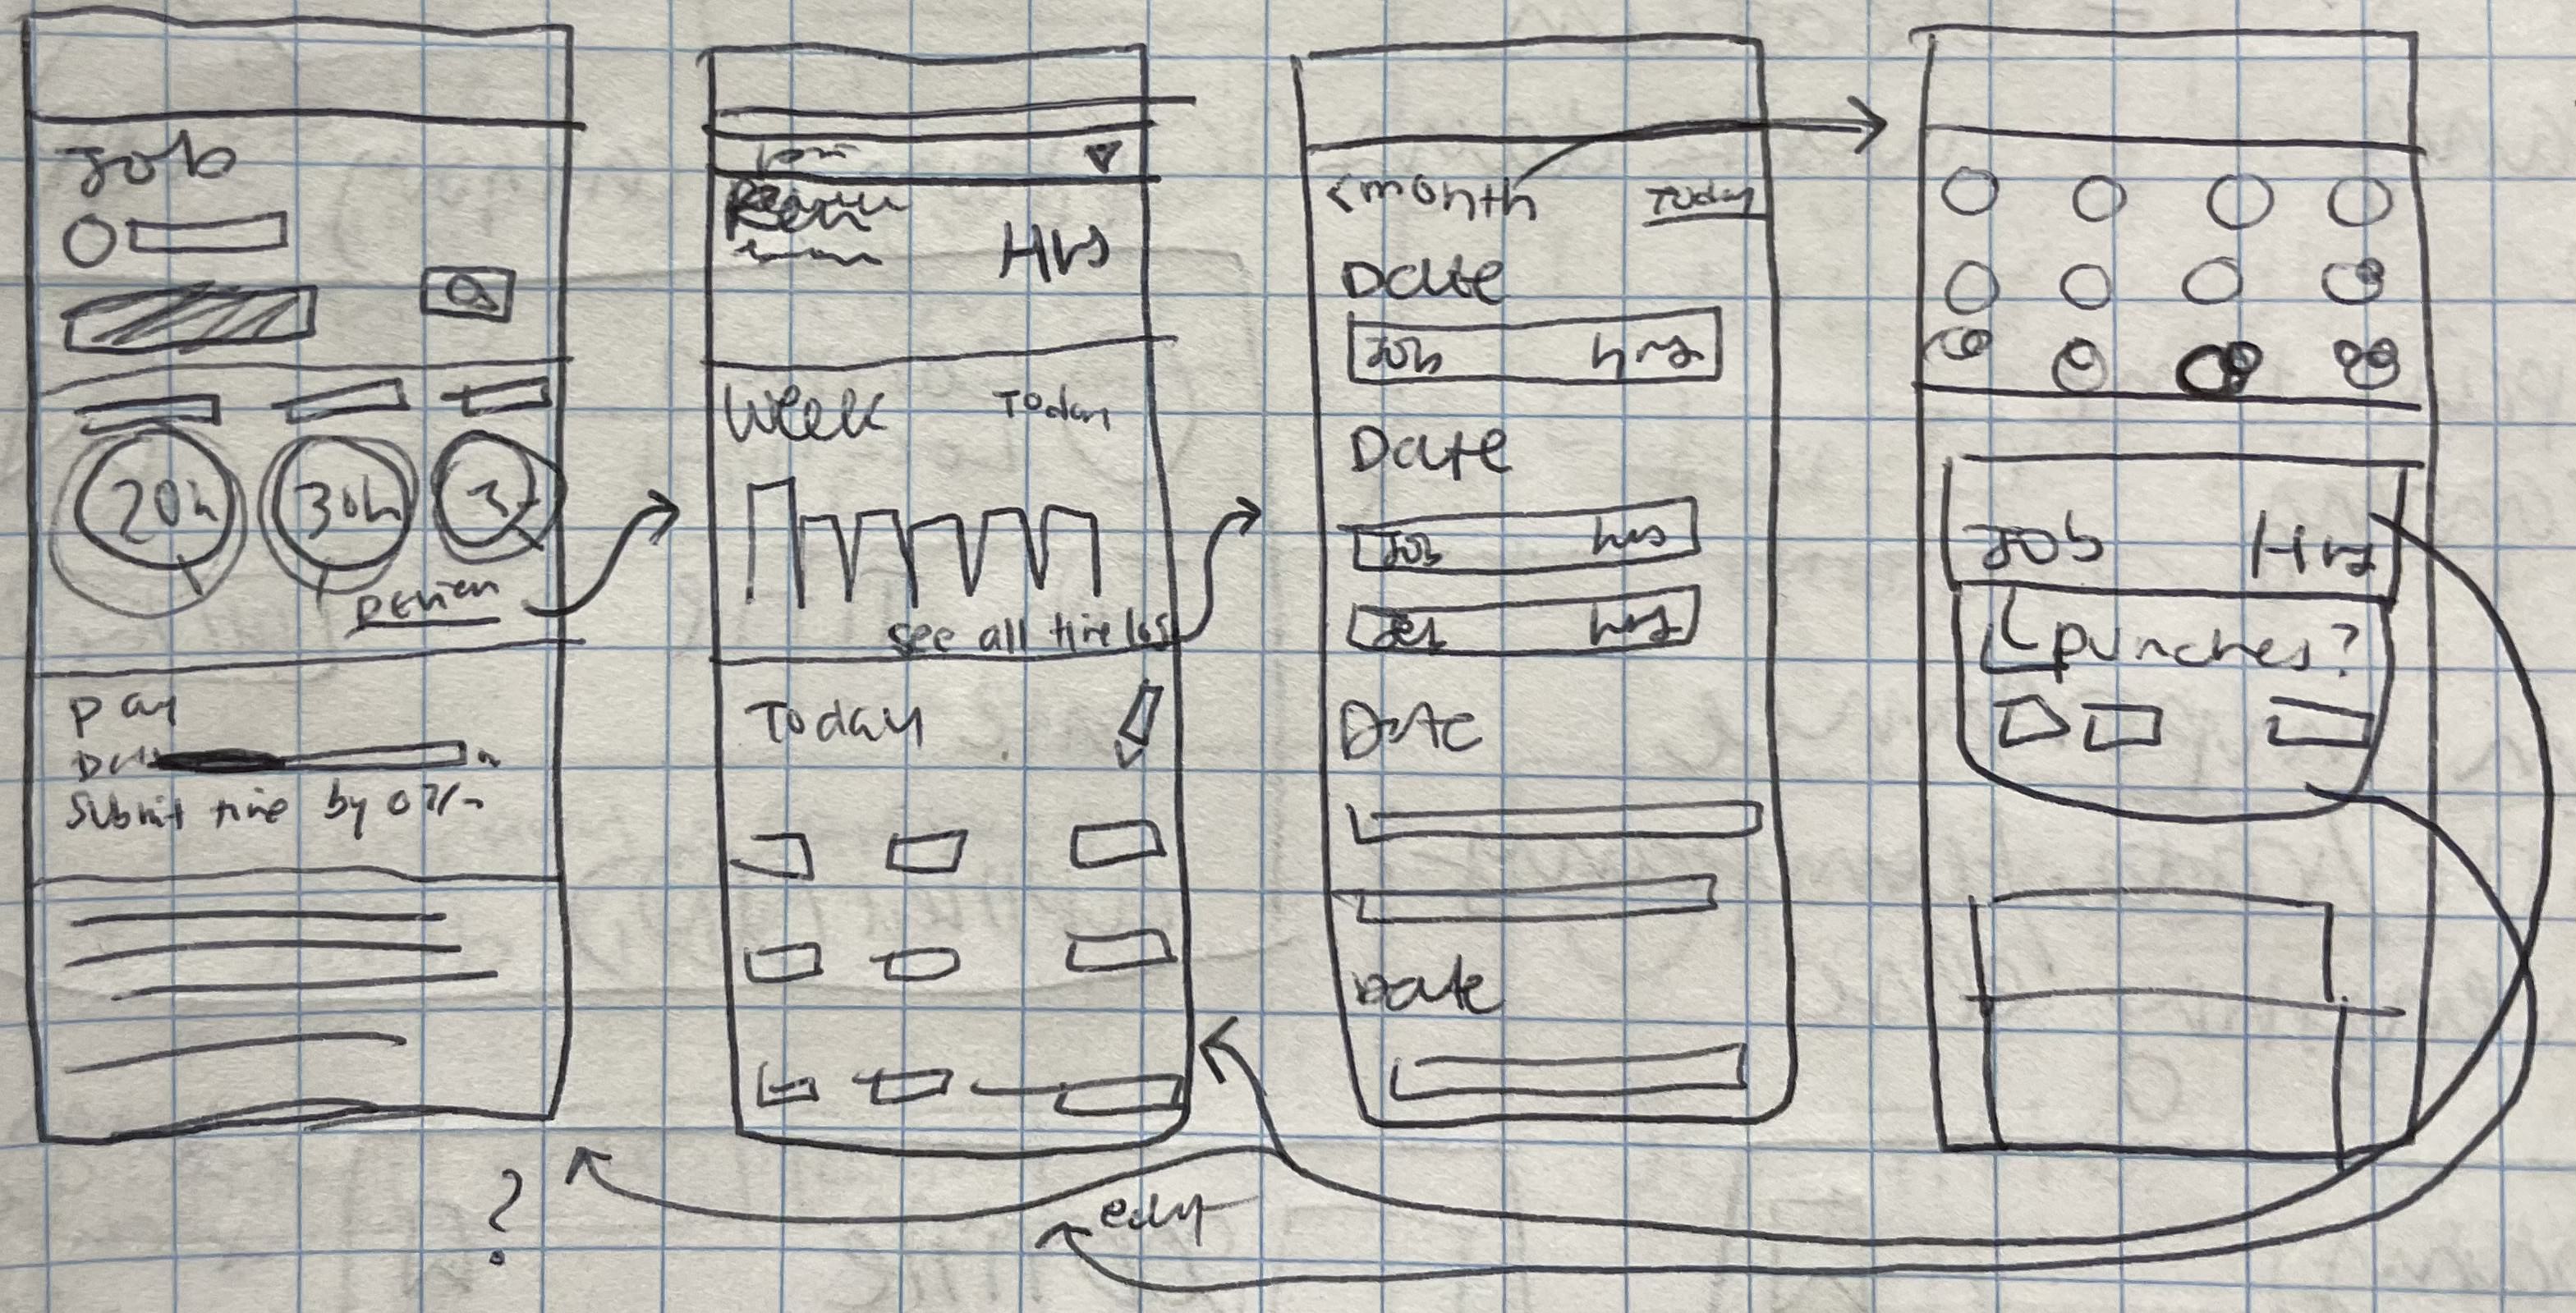 Job
20h 30h 3
Review
Pay
Submit time by 07/
Hrs
Week Today
see all time logs
Today
<month Today
Date
Job hrs
Date
Job hrs
Job hrs
Date
Date
Job Hrs
punches?
?
edit